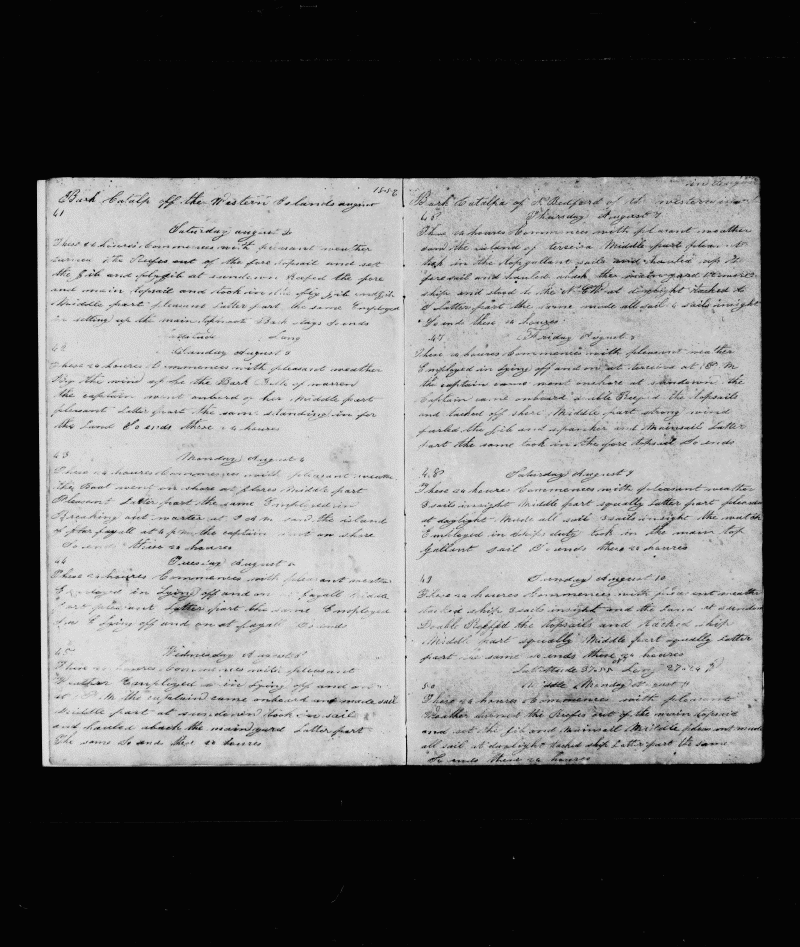 1856
Bark Catalpa off the Western Islands august
41
Saturday august
These 24 houres Commences with pleasant weather
turned the Reefes out of the fore topsail and set
the jib and at sundown Reefed the fore
and main topsail and took in the jib
Middle part pleasant Latter part the same Employed
in setting up the main topmast Back stays So ends
Latitude Long
42
Sunday August 3
These 24 houres Commences with pleasant weather
the wind the Bark of warren
the captain went onbord of her Middle part
pleasant Latter part the same standing in for
the Land So ends these 24 houres
43
Monday August 4
These 24 houres Commences with pleasant weather
the Boat went on shore at flores Middle part
Pleasant Latter part the same Employed in
Breaking out warter at 8 A m saw the island
of fayall at 4 p m the captain went on shore
So ends these 24 houres
44
Tuesday August 5
These 24 houres Commences with pleasant weather
Employed in Lying off and on at fayall Middle
part pleasant Latter part the same Employed
in Lying off and on at fayall So ends
45
Wednesday August 6
These 24 houres Commences with pleasant
Weather Employed in Lying off and on
at M the captain came onboard and made sail
Middle part at sundown took in sail
and hauled aback the main yard Latter part
The same So ends these 24 houres
Bark Catalpa of N Bedford of the western
46
Thursday August 7
These 24 houres Commences with pleasant weather
saw the island of terceira Middle part
took in the topgallant sails and hauled up the
foresail and hauled aback the main yard
ship and stood to the N E W at daylight tacked to
S Latter part the same made all sail 4 sails insight
So ends these 24 houres
47
Friday August 8
These 24 houres Commences with pleasant weather
Employed in Lying off and on at terceira at M
the captain came onshore at sundown the
Captain came onboard double Reefed the topsails
and tacked off shore Middle part strong wind
furled the jib and spanker and Mainsail Latter
part the same took in the fore topsail So ends
48
Saturday August 9
These 24 houres Commences with pleasant weather
sails insight Middle part squally Latter part pleasant
at daylight Made all sail 3 sails insight the watch
Employed in ships duty took in the main top
gallant sail So ends these 24 houres
49
Sunday August 10
These 24 houres Commences with pleasant weather
tacked ship 2 sails insight and the Land at sundown
Double Reefed the topsails and tacked ship
Middle part squally Middle part squally Latter
part the same So ends these 24 houres
Lat Long 27-24
50
Monday August 11
These 24 houres Commences with pleasant
Weather turned the Reefes out of the main topsail
and set the jib and Mainsail Middle pleasant made
all sail at daylight tacked ship Latter part the same
So ends these 24 houres